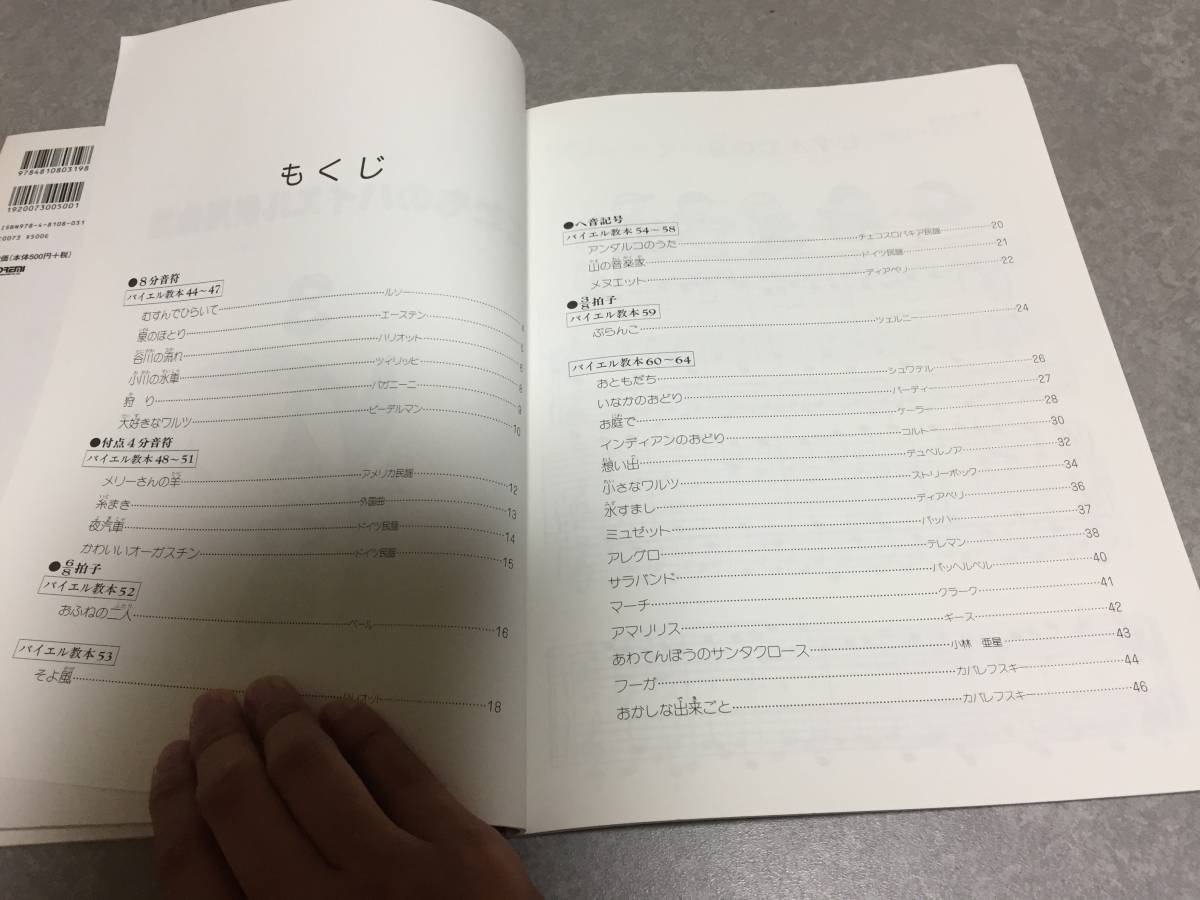 9784810803198
1920073005001
ISBN978-4-8108-031
20073 ¥500E
価(本体500円+税)
もくじ
●8分音符
バイエル教本44〜47
むすんでひらいて ルソー
泉のほとり エーステン
谷川の流れ ハリオット
小川の水車 ツィリッヒ 8
狩り パガニーニ 9
大好きなワルツ ビーデルマン 10
●付点4分音符
バイエル教本48〜51
メリーさんの羊 アメリカ民謡 12
糸まき 外国曲 13
夜汽車 ドイツ民謡 14
かわいいオーガスチン ドイツ民謡 15
●6/8拍子
バイエル教本52
おふねの二人 ベール 16
バイエル教本53
そよ風 18
●ヘ音記号
バイエル教本54〜58
アンダルコのうた チェコスロバキア民謡 20
山の音楽家 ドイツ民謡 21
メヌエット ディアベリ 22
●3/8拍子
バイエル教本59
ぶらんこ ツェルニー 24
バイエル教本60〜64
おともだち シュワテル 26
いなかのおどり バーディー 27
お庭で ケーラー 28
インディアンのおどり コルトー 30
想い出 デュベルノア 32
小さなワルツ ストリーボッグ 34
水すまし ディアベリ 36
ミュゼット バッハ 37
アレグロ テレマン 38
サラバンド パッヘルベル 40
マーチ クラーク 41
アマリリス ギース 42
あわてんぼうのサンタクロース 小林 亜星 43
フーガ カバレフスキー 44
おかしな出来ごと カバレフスキー 46